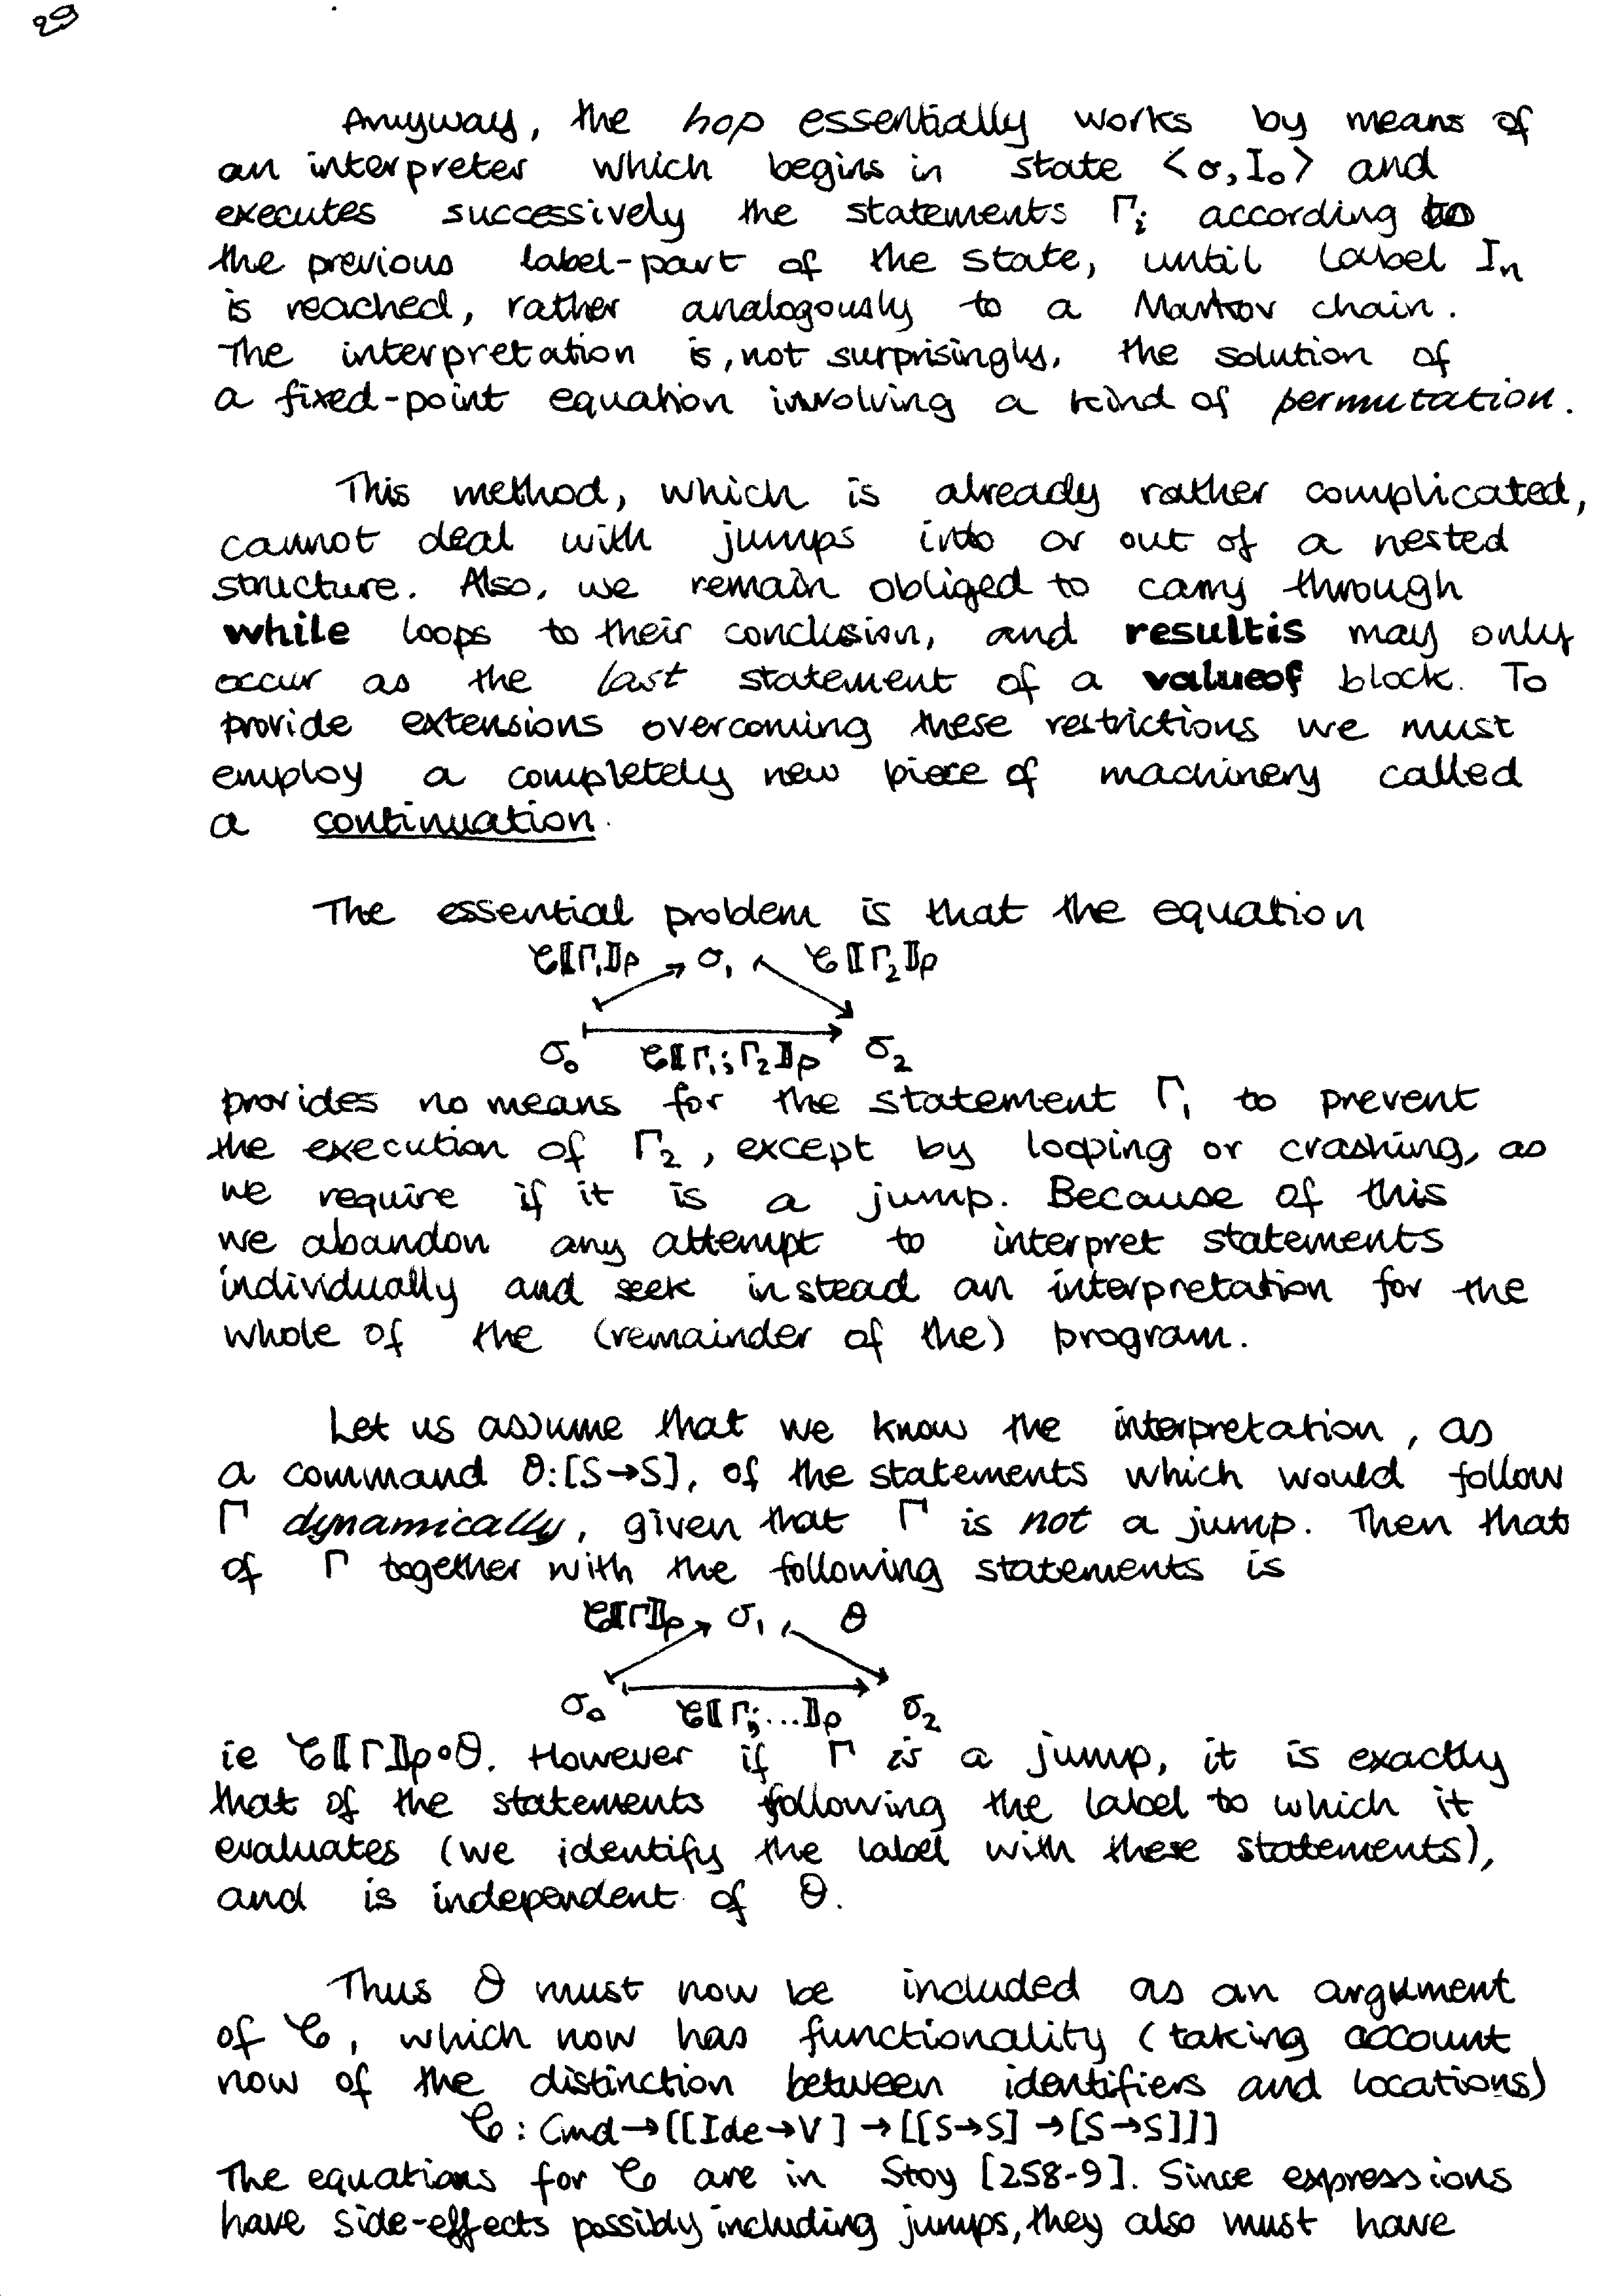 29
Anyway, the hop essentially works by means of
an interpreter which begins in state <σ,I₀> and
executes successively the statements Γᵢ according to
the previous label-part of the state, until label Iₙ
is reached, rather analogously to a Markov chain.
The interpretation is, not surprisingly, the solution of
a fixed-point equation involving a kind of permutation.
This method, which is already rather complicated,
cannot deal with jumps into or out of a nested
structure. Also, we remain obliged to carry through
while loops to their conclusion, and resultis may only
occur as the last statement of a valueof block. To
provide extensions overcoming these restrictions we must
employ a completely new piece of machinery called
a continuation.
The essential problem is that the equation
𝒞⟦Γ₁⟧ρ σ₁ 𝒞⟦Γ₂⟧ρ
σ₀ 𝒞⟦Γ₁;Γ₂⟧ρ σ₂
provides no means for the statement Γ₁ to prevent
the execution of Γ₂, except by looping or crashing, as
we require if it is a jump. Because of this
we abandon any attempt to interpret statements
individually and seek instead an interpretation for the
whole of the (remainder of the) program.
Let us assume that we know the interpretation, as
a command θ:[S→S], of the statements which would follow
Γ dynamically, given that Γ is not a jump. Then that
of Γ together with the following statements is
𝒞⟦Γ⟧ρ σ₁ θ
σ₀ 𝒞⟦Γ;...⟧ρ σ₂
ie 𝒞⟦Γ⟧ρ∘θ. However if Γ is a jump, it is exactly
that of the statements following the label to which it
evaluates (we identify the label with these statements),
and is independent of θ.
Thus θ must now be included as an argument
of 𝒞, which now has functionality (taking account
now of the distinction between identifiers and locations)
𝒞 : Cmd→[[Ide→V]→[[S→S]→[S→S]]]
The equations for 𝒞 are in Stoy [258-9]. Since expressions
have side-effects possibly including jumps, they also must have